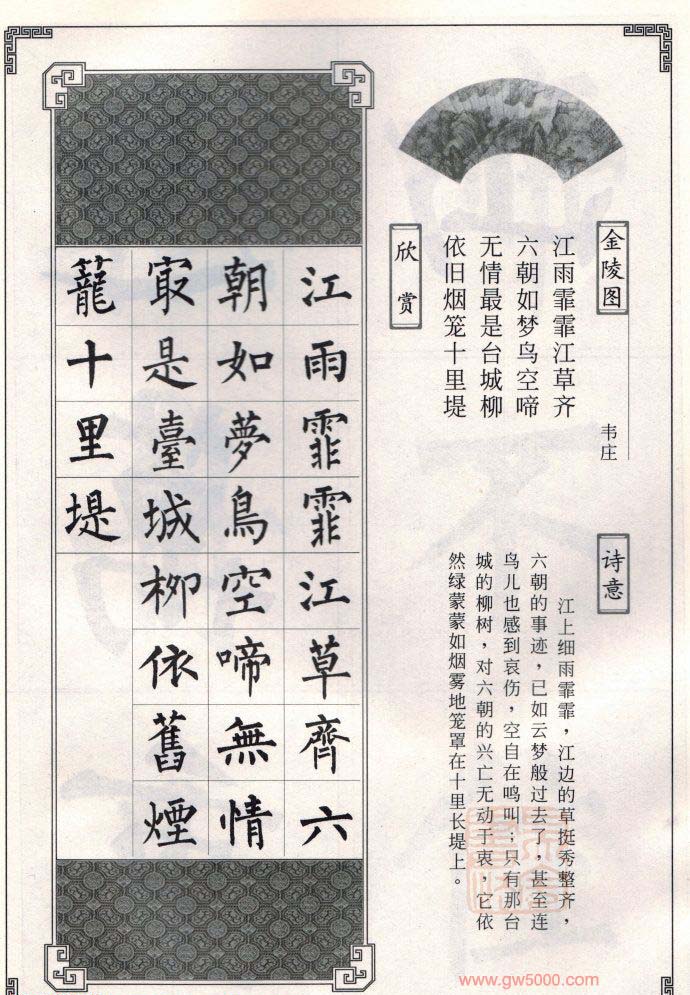 金陵图
韦庄
江雨霏霏江草齐
六朝如梦鸟空啼
无情最是台城柳
依旧烟笼十里堤
诗意
江上细雨霏霏，江边的草挺秀整齐，
六朝的事迹，已如云梦般过去了，甚至连
鸟儿也感到哀伤，空自在鸣叫；只有那台
城的柳树，对六朝的兴亡无动于衷，它依
然绿蒙蒙如烟雾地笼罩在十里长堤上。
欣赏
江雨霏霏江草齊六
朝如夢鳥空啼無情
冣是臺城柳依舊煙
籠十里堤
www.gw5000.com